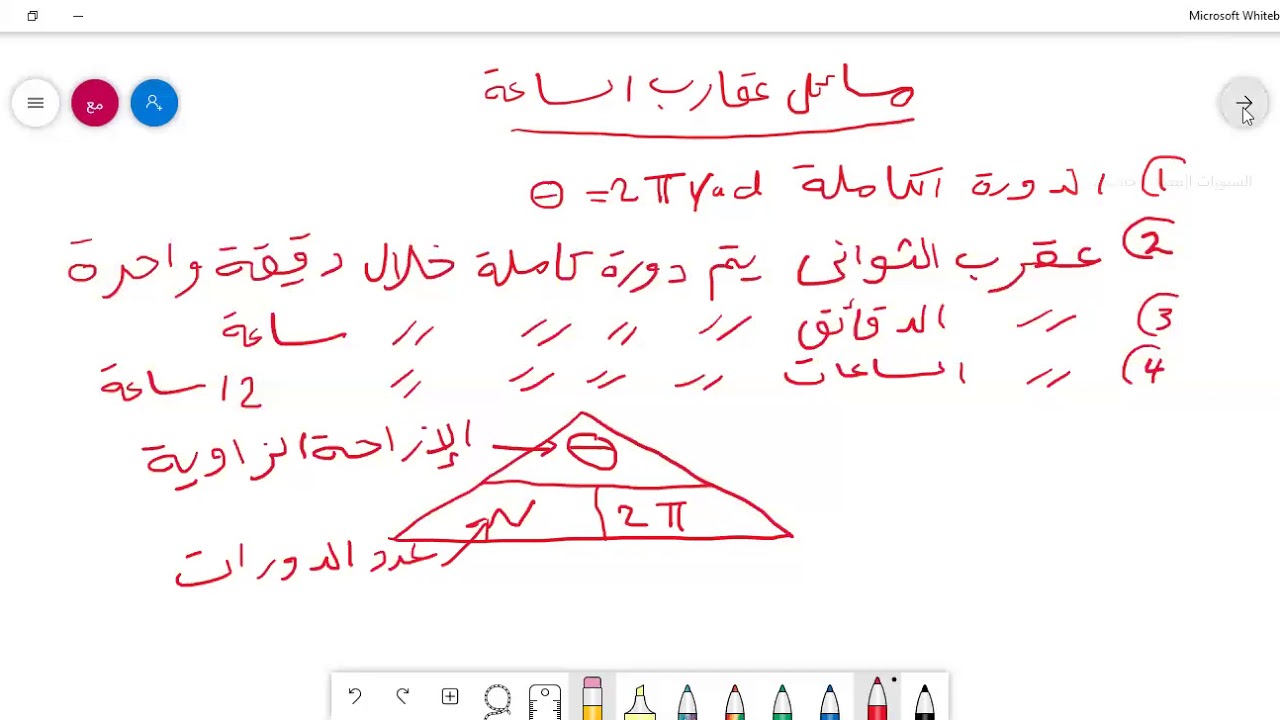 Microsoft Whiteb
مع
مسائل عقارب الساعة
① الدورة الكاملة θ = 2π rad
② عقرب الثوانى يتم دورة كاملة خلال دقيقة واحدة
③ // الدقائق // // // // ساعة
④ // الساعات // // // // 12 ساعة
الإزاحة الزاوية
θ
N 2π
عدد الدورات